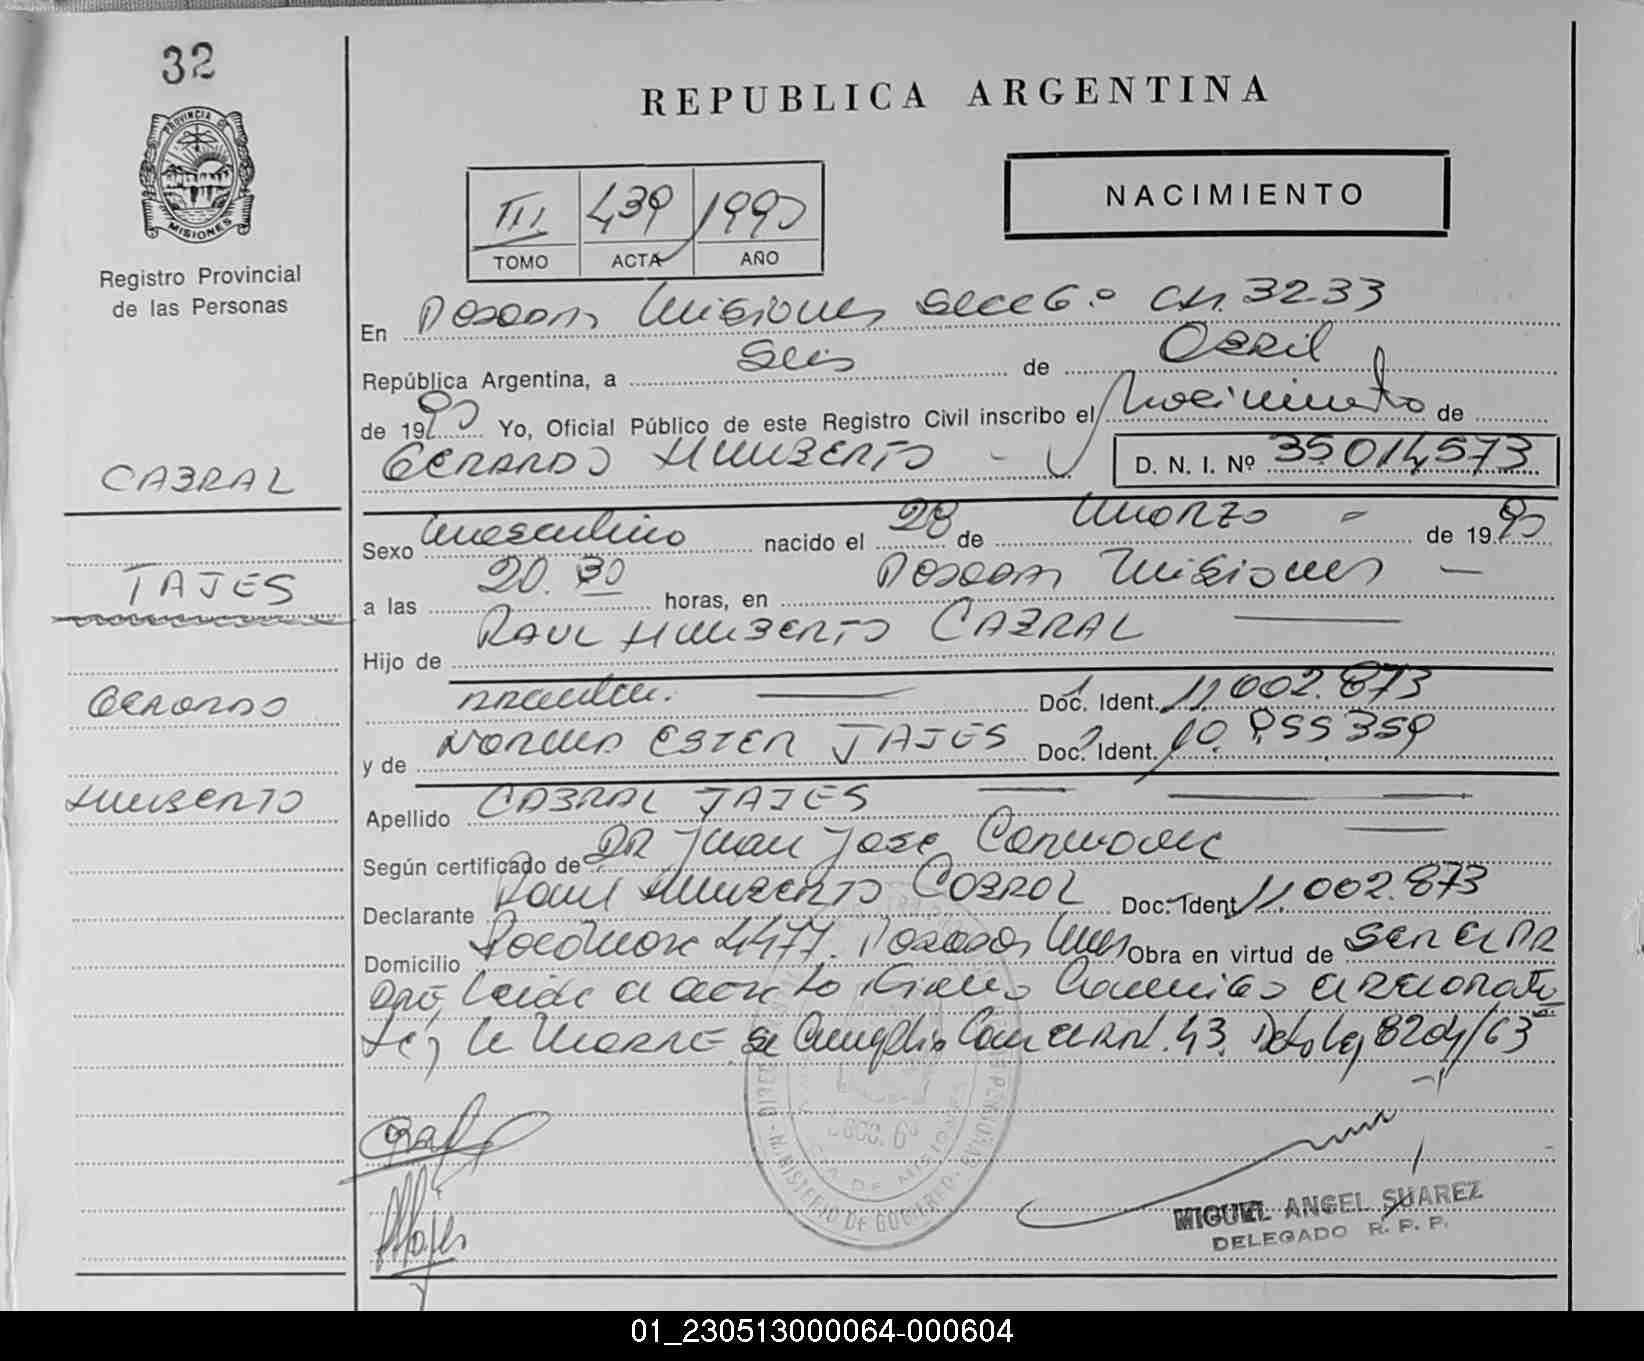 32
REPUBLICA ARGENTINA
PROVINCIA DE
MISIONES
Registro Provincial
de las Personas
NACIMIENTO
III 439 1990
TOMO ACTA AÑO
En Posadas Misiones Secc 6º Ch. 32-33
República Argentina, a Seis de Abril
de 1990 Yo, Oficial Público de este Registro Civil inscribo el Nacimiento de
GERARDO HUMBERTO D. N. I. Nº 35.014,573
CABRAL
Sexo masculino nacido el 28 de Marzo de 1990
TAJES
a las 20.30 horas, en Posadas Misiones
Hijo de RAUL HUMBERTO CABRAL
GERARDO
Doc. Ident. 11.002.873
y de NORMA ESTER TAJES Doc. Ident. 10.955359
HUMBERTO
Apellido CABRAL TAJES
Según certificado de DR Juan Jose
Declarante Raul HUMBERTO CABRAL Doc. Ident 11.002.873
Domicilio 4477. Posadas Mnes Obra en virtud de Ser el PA
DRE, Leida el acta
te y la Madre se Cumplio Con el Art. 43. Dcto Ley 8204/63
SECC. 6º
MINISTERIO DE GOBIERNO
MIGUEL ANGEL SUAREZ
DELEGADO R. P. P.
01_230513000064-000604